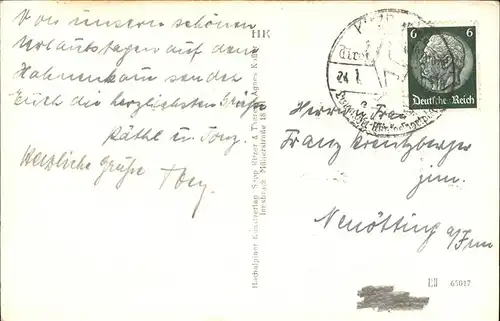 Von unseren schönen
Urlaubstagen auf dem
Hahnenkam senden
Euch die herzlichsten Grüße
Käthl u. Tony.
Herzliche Grüße Tony
HK
Hochalpiner Kunstverlag Sepp Ritzer
Innsbruck, Müllerstraße 18
Tirol
24. 1.
6 6
Deutsches Reich
Herrn u. Frau
Franz Kreuzberger
jun.
Neuötting a/Inn
65017